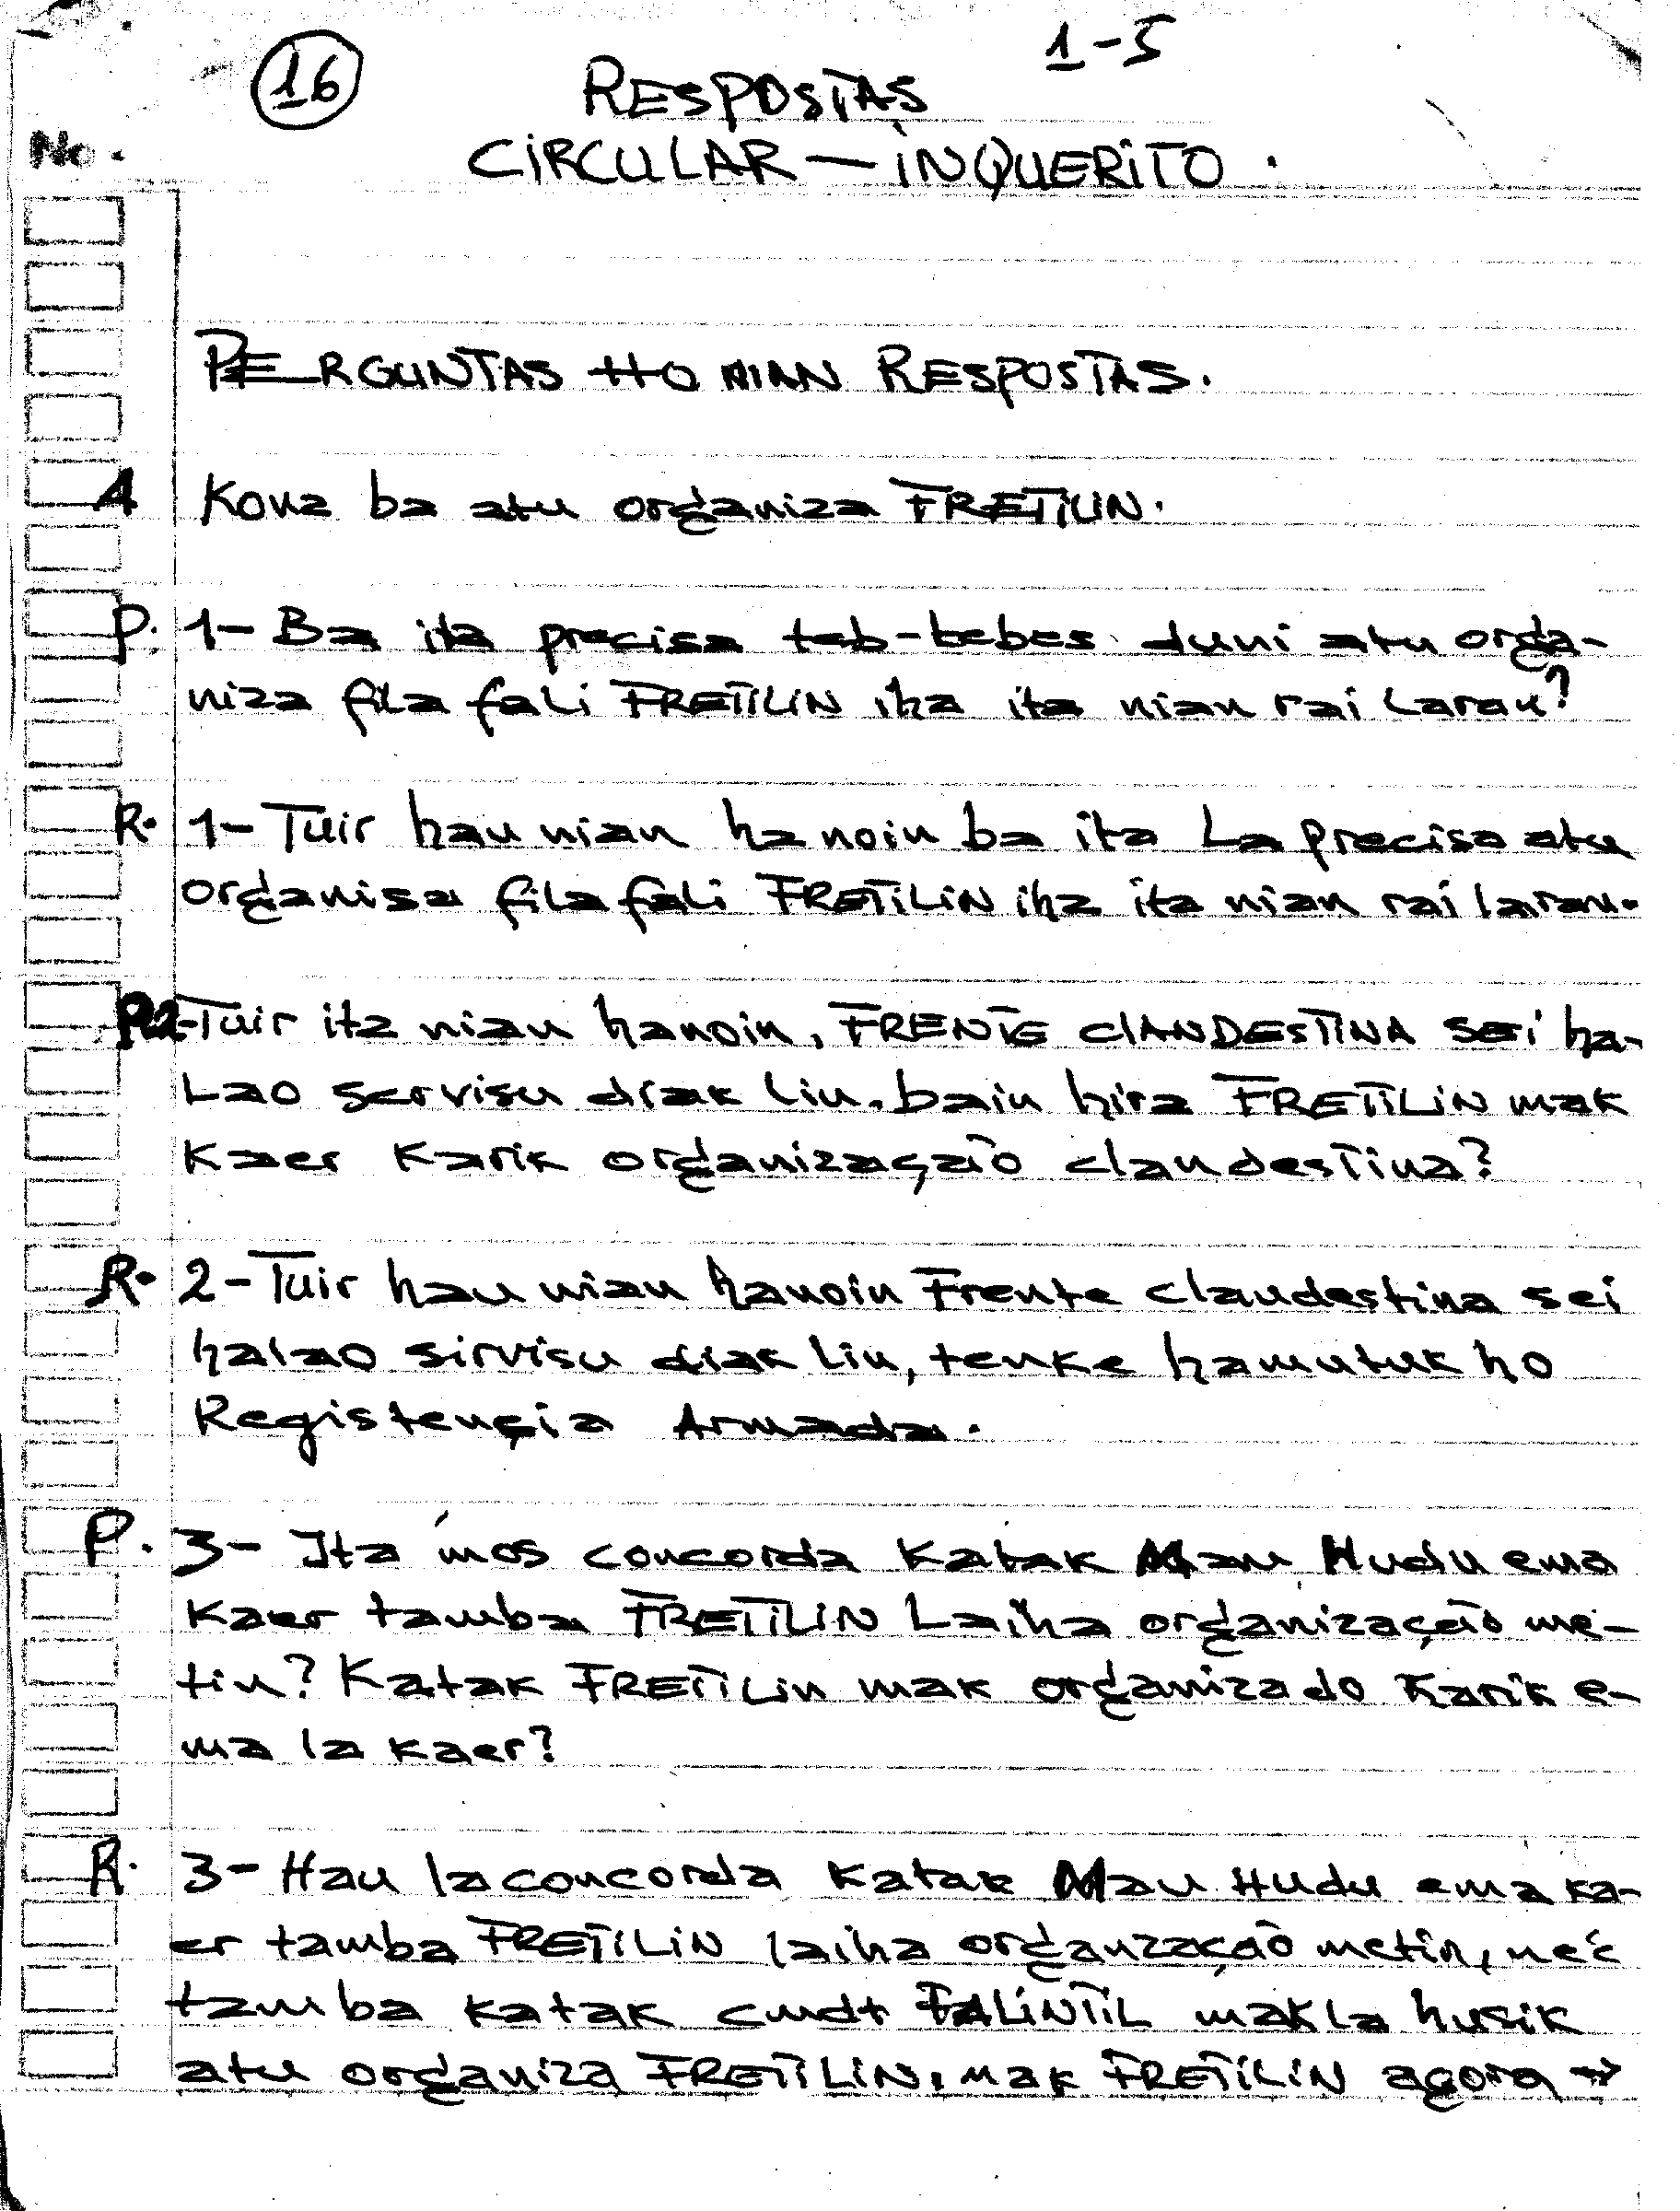 16
1-5
RESPOSTAS
CIRCULAR — INQUERITO.
No.
PERGUNTAS HO NIAN RESPOSTAS.
A Kona ba atu organiza FRETILIN.
P. 1- Ba ita precisa teb-tebes duni atu orga-
niza fila fali FRETILIN iha ita nian rai laran?
R. 1- Tuir hau nian hanoin ba ita la precisa atu
organisa fila fali FRETILIN iha ita nian rai laran.
P.2- Tuir ita nian hanoin, FRENTE CLANDESTINA sei ha-
lao servisu diak liu, bain hira FRETILIN mak
kaer karik organização clandestina?
R. 2- Tuir hau nian hanoin Frente clandestina sei
halao sirvisu diak liu, tenke hamutuk ho
Registençia Armada.
P. 3- Ita mos concorda katak Mau Hudu ema
kaer tamba FRETILIN laiha organização me-
tin? Katak FRETILIN mak organizado karik e-
ma la kaer?
R. 3- Hau la concorda katak Mau Hudu ema ka-
er tamba FRETILIN laiha organzação metin, neé
tamba katak cmdt FALINTIL mak la husik
atu organiza FRETILIN, mak FRETILIN agora →